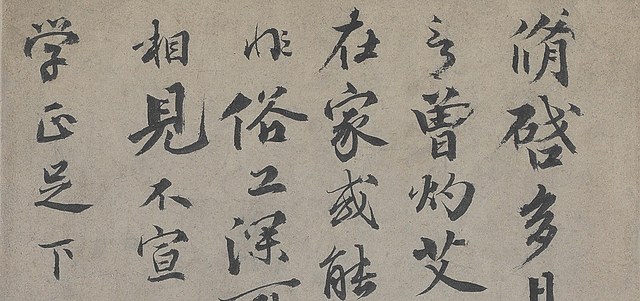 脩啓多
言曾灼艾
在家或能
非俗工深
相見不宣
学正足下